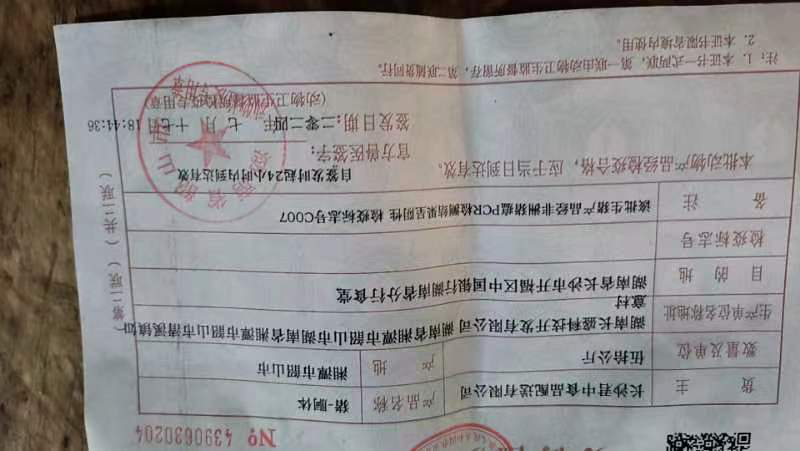 № 4390630204
货主 长沙君中食品配送有限公司 产品名称 猪-胴体
数量及单位 伍拾公斤 产地 湘潭市韶山市
生产单位名称地址 湖南长盛科技开发有限公司 湖南省湘潭市韶山市湖南省湘潭市韶山市清溪镇如意村
目的地 湖南省长沙市开福区中国银行湖南省分行食堂
检疫标志号
备注 该批生猪产品经非洲猪瘟PCR检测结果呈阴性 检疫标志号C007
本批动物产品经检疫合格，应于当日到达有效。
自签发时起24小时内到达有效
官方兽医签字：
签发日期：二零二四年 七 月 十七日 18:44:36
（动物卫生监督所检疫专用章）
（第二联）（共二联）
注：1. 本证书一式两联，第一联由动物卫生监督所留存，第二联随货同行。
2. 本证书限省境内使用。